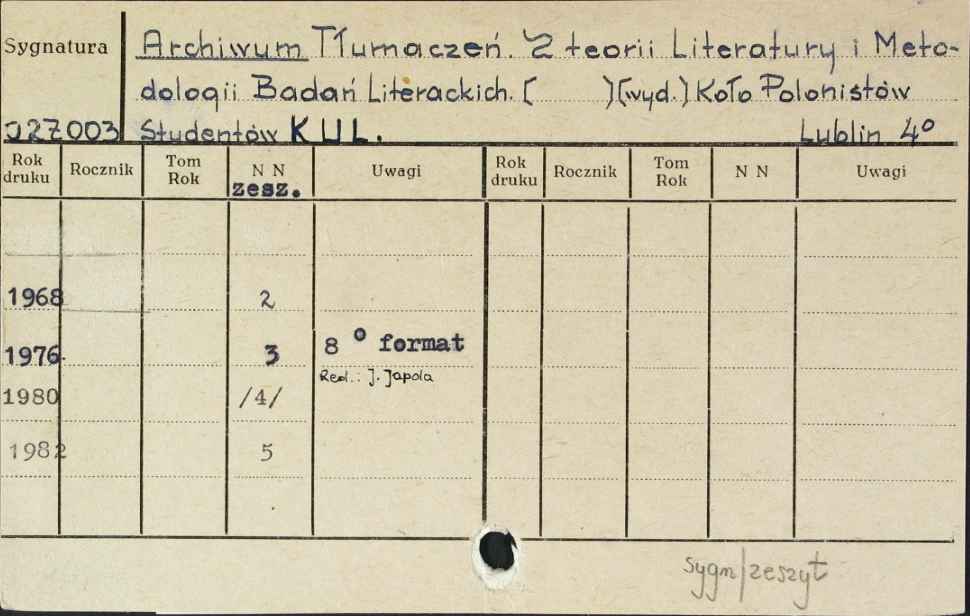 Sygnatura
Archiwum Tłumaczeń. Z teorii Literatury i Meto-
dologii Badań Literackich. [ )(wyd.) Koło Polonistów
027003 Studentów KUL. Lublin 4°
Rok druku Rocznik Tom Rok N N zesz. Uwagi Rok druku Rocznik Tom Rok N N Uwagi
1968 2
1976 3 8° format
Red.: J. Japola
1980 /4/
1982 5
sygn/zeszyt